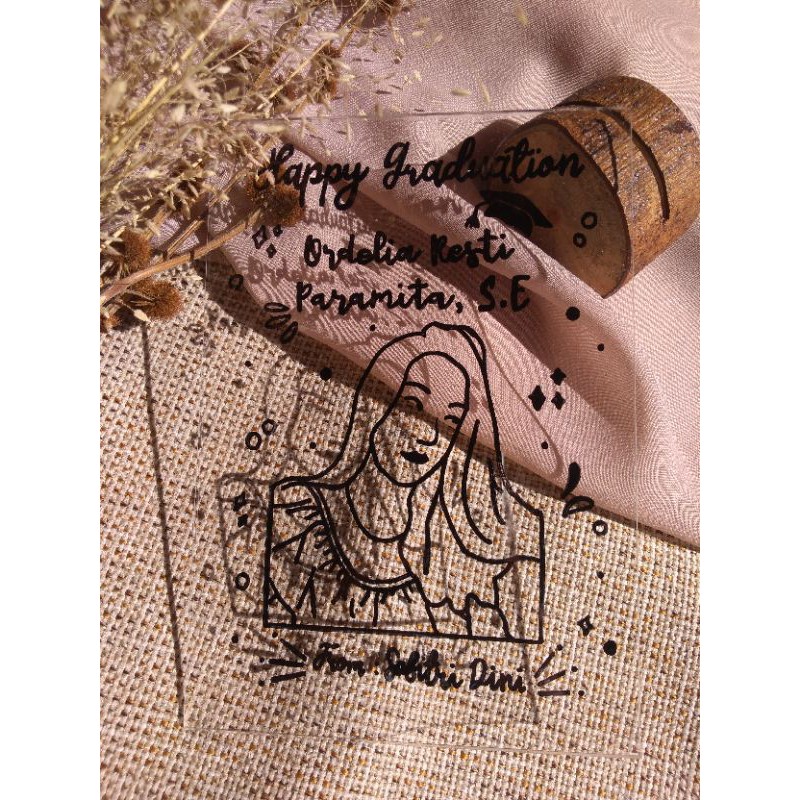 Happy Graduation
Ordolia Resti
Paramita, S.E
From : Sabitri Dini